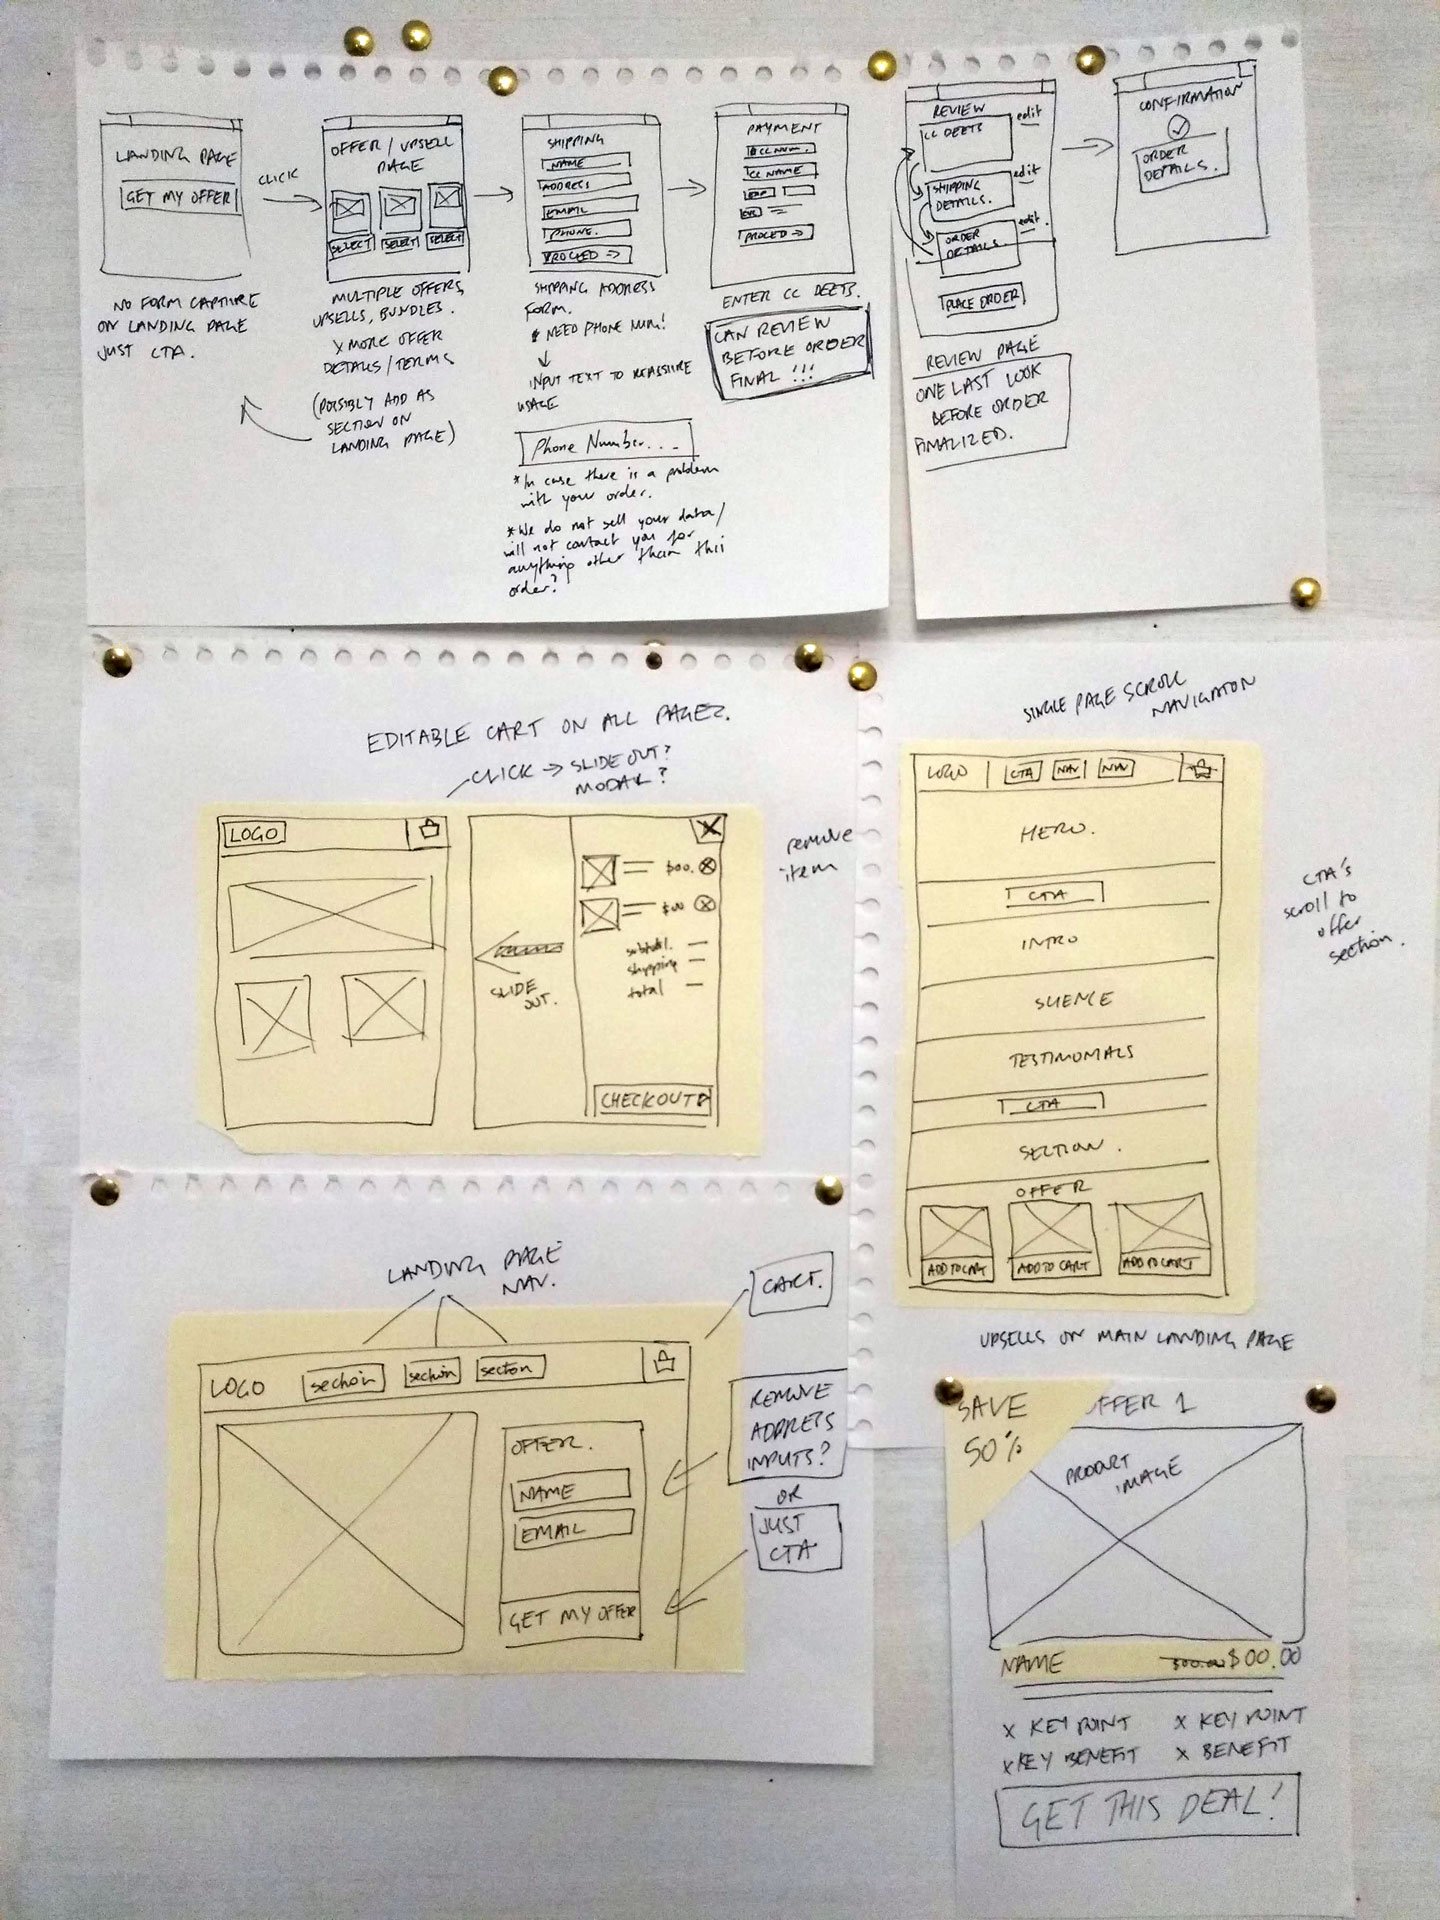 LANDING PAGE
GET MY OFFER
NO FORM CAPTURE
ON LANDING PAGE
JUST CTA.
CLICK
OFFER / UPSELL
PAGE
SELECT
SELECT
SELECT
MULTIPLE OFFERS,
UPSELLS, BUNDLES.
x MORE OFFER
DETAILS / TERMS
(POSSIBLY ADD AS
SECTION ON
LANDING PAGE)
SHIPPING
NAME
ADDRESS
EMAIL
PHONE.
PROCEED →
SHIPPING ADDRESS
FORM.
* NEED PHONE NUM!
↓
INPUT TEXT TO REASSURE
USAGE
Phone Number. . . _
*In case there is a problem
with your order.
*We do not sell your data/
will not contact you for
anything other than this
order?
PAYMENT
CC NUM.
CC NAME
EXP
CVC
PROCEED →
ENTER CC DEETS.
CAN REVIEW
BEFORE ORDER
FINAL !!!
REVIEW
CC DEETS
edit
SHIPPING
DETAILS.
edit
ORDER
DETAILS.
edit.
PLACE ORDER
REVIEW PAGE
ONE LAST LOOK
BEFORE ORDER
FINALIZED.
CONFIRMATION
ORDER
DETAILS.
EDITABLE CART ON ALL PAGES.
CLICK → SLIDE OUT?
MODAL?
LOGO
SLIDE
OUT.
X
$00.
$00
subtotal.
shipping
total
CHECKOUT
remove
item
SINGLE PAGE SCROLL
NAVIGATION
LOGO
CTA
NAV
NAV
HERO.
CTA
INTRO
SCIENCE
TESTIMONIALS
CTA
SECTION.
OFFER
ADD TO CART
ADD TO CART
ADD TO CART
CTA's
scroll to
offer
section.
UPSELLS ON MAIN LANDING PAGE
LANDING PAGE
NAV.
CART.
LOGO
section
section
section
OFFER.
NAME
EMAIL
GET MY OFFER
REMOVE
ADDRESS
INPUTS?
OR
JUST
CTA
SAVE
50%
OFFER 1
PRODUCT
IMAGE
NAME
$00.00 $00.00
x KEY POINT x KEY POINT
x KEY BENEFIT x BENEFIT
GET THIS DEAL!